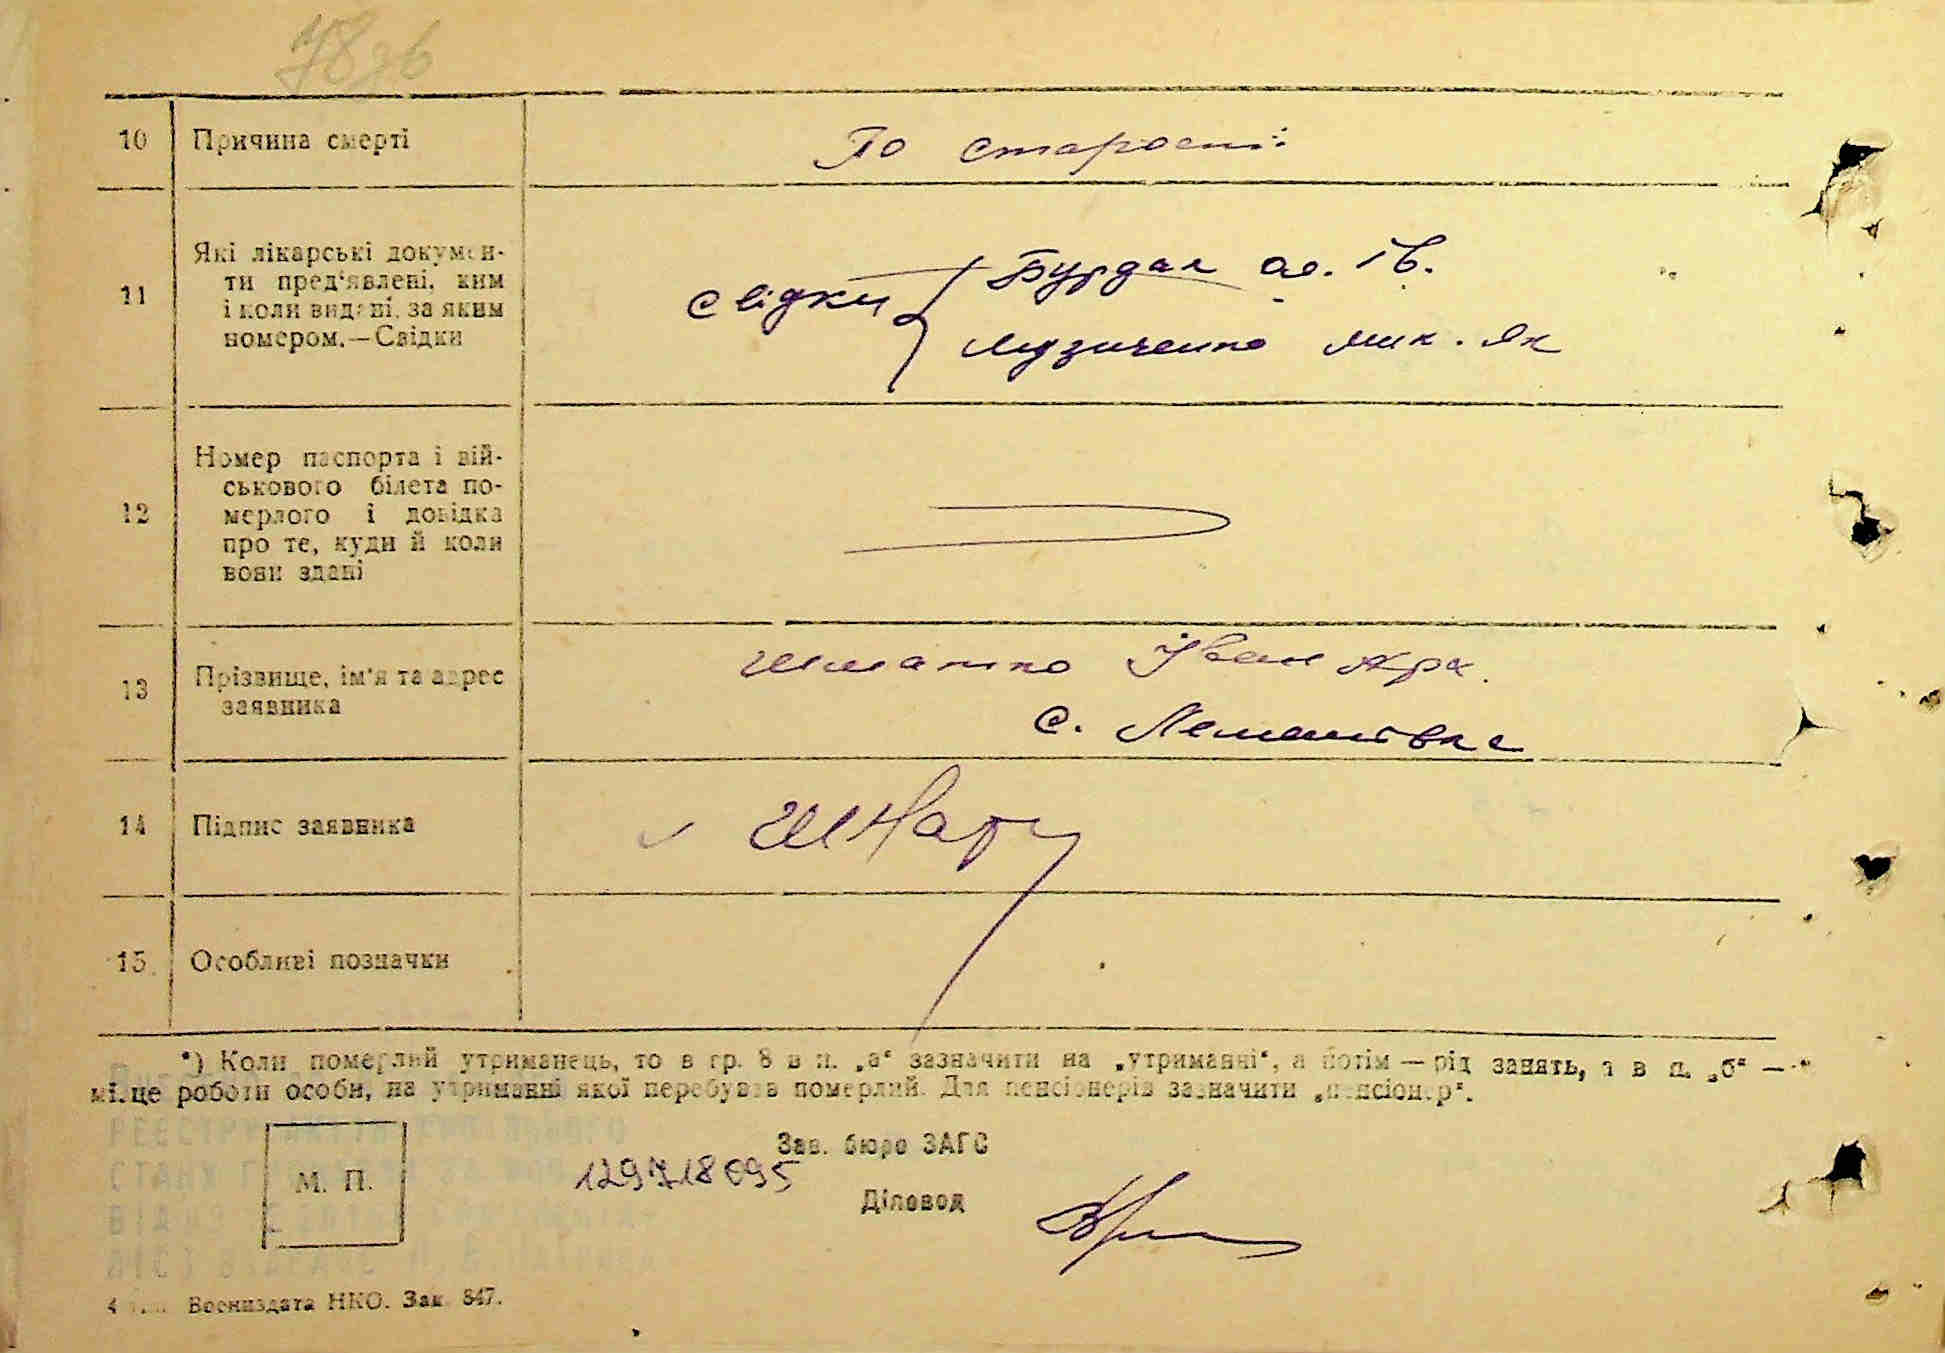 78зв
10 Причина смерті По старості
11 Які лікарські докумен-
ти пред'явлені, ким
і коли видані, за яким
номером.—Свідки
Свідки Бурдак ів.
Музиченко мик. Як
12 Номер паспорта і вій-
ськового білета по-
мерлого і довідка
про те, куди й коли
вони здані
13 Прізвище, ім'я та адрес
заявника
Шматко Іван Арх.
с. Лемешівка
14 Підпис заявника
15 Особливі позначки
*) Коли померлий утриманець, то в гр. 8 в п. „а“ зазначити на „утриманні“, а потім — рід занять, а в п. „б“ —
місце роботи особи, на утриманні якої перебував померлий. Для пенсіонерів зазначити „пенсіонер“.
М. П.
Зав. бюро ЗАГС
129718095
Діловод
4 тип. Воениздата НКО. Зак. 847.